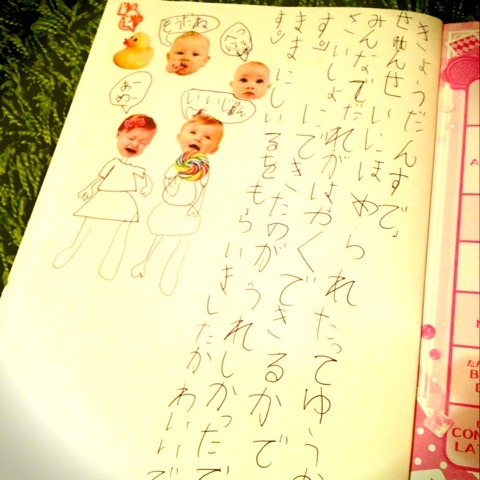 きょうだんすで、
せんせいにほめられたってゆうか
みんなでだれがはやくできるかで
さいしょにできたのがうれしかったで
す。
ままにしいるをもらいましたかわいいで
す。
そうだね
いいじゃん